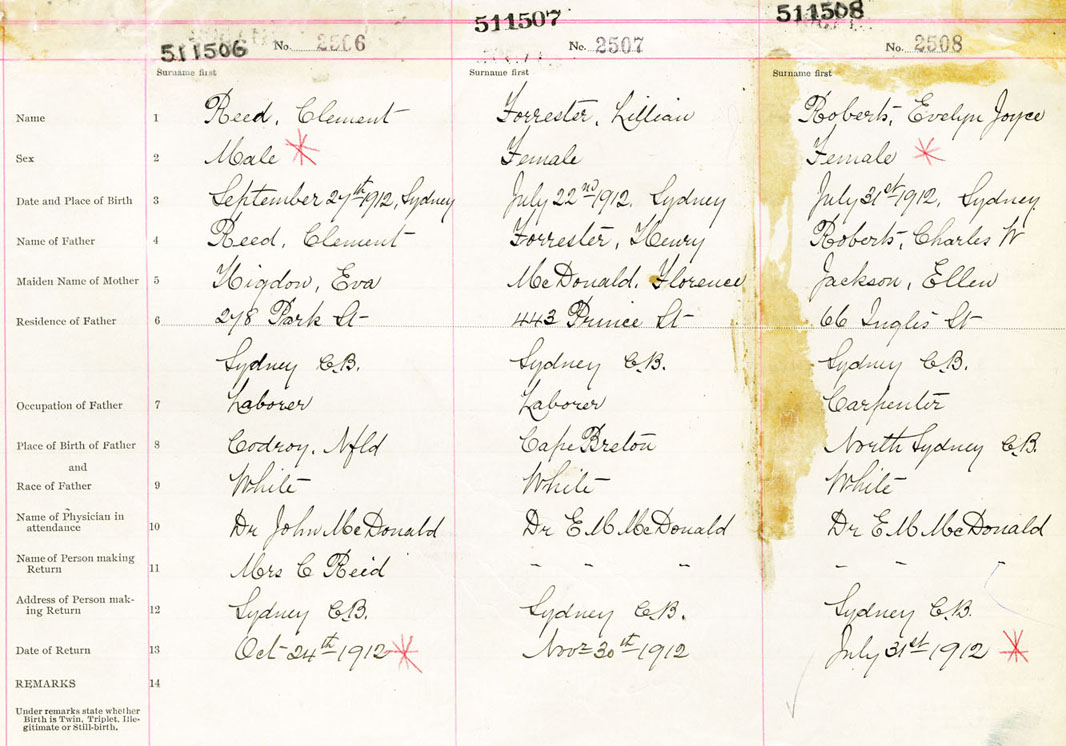 511506 No. 2506 511507 No. 2507 511508 No. 2508
Surname first Surname first Surname first
Name 1 Reed, Clement Forrester, Lillian Roberts, Evelyn Joyce
Sex 2 Male Female Female
Date and Place of Birth 3 September 27th 1912, Sydney July 22nd 1912, Sydney July 31st 1912, Sydney
Name of Father 4 Reed, Clement Forrester, Henry Roberts, Charles W
Maiden Name of Mother 5 Higdon, Eva McDonald, Florence Jackson, Ellen
Residence of Father 6 278 Park St 443 Prince St 66 Inglis St
Sydney C.B. Sydney C.B. Sydney C.B.
Occupation of Father 7 Laborer Laborer Carpenter
Place of Birth of Father 8 Codroy, Nfld Cape Breton North Sydney C.B.
and
Race of Father 9 White White White
Name of Physician in
attendance 10 Dr John McDonald Dr E M McDonald Dr E M McDonald
Name of Person making
Return 11 Mrs C Reid " " " " "
Address of Person mak-
ing Return 12 Sydney C.B. Sydney C.B. Sydney C.B.
Date of Return 13 Oct 24th 1912 Nov 30th 1912 July 31st 1912
REMARKS 14
Under remarks state whether
Birth is Twin, Triplet, Ille-
gitimate or Still-birth.